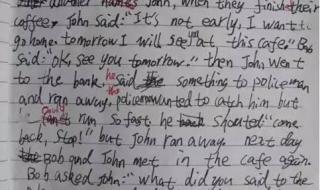 another names John, when they finish their
coffee, John said: "It's not early, I want to
go home. tomorrow I will see you at this cafe." Bob
said: "ok, see you tomorrow." then John went
to the bank he said something to policeman
and ran away, the policeman wanted to catch him but
can't run so fast he shouted "come
back, stop!" but John ran away. next day
Bob and John met in the cafe again.
Bob asked John: "what did you said to the